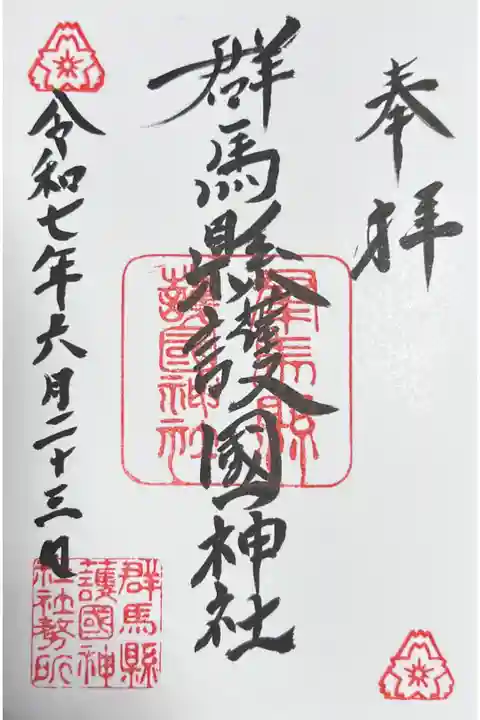 奉拝
群馬縣護國神社
群馬縣
護国神社
令和七年六月二十三日
群馬縣
護國神
社社務所